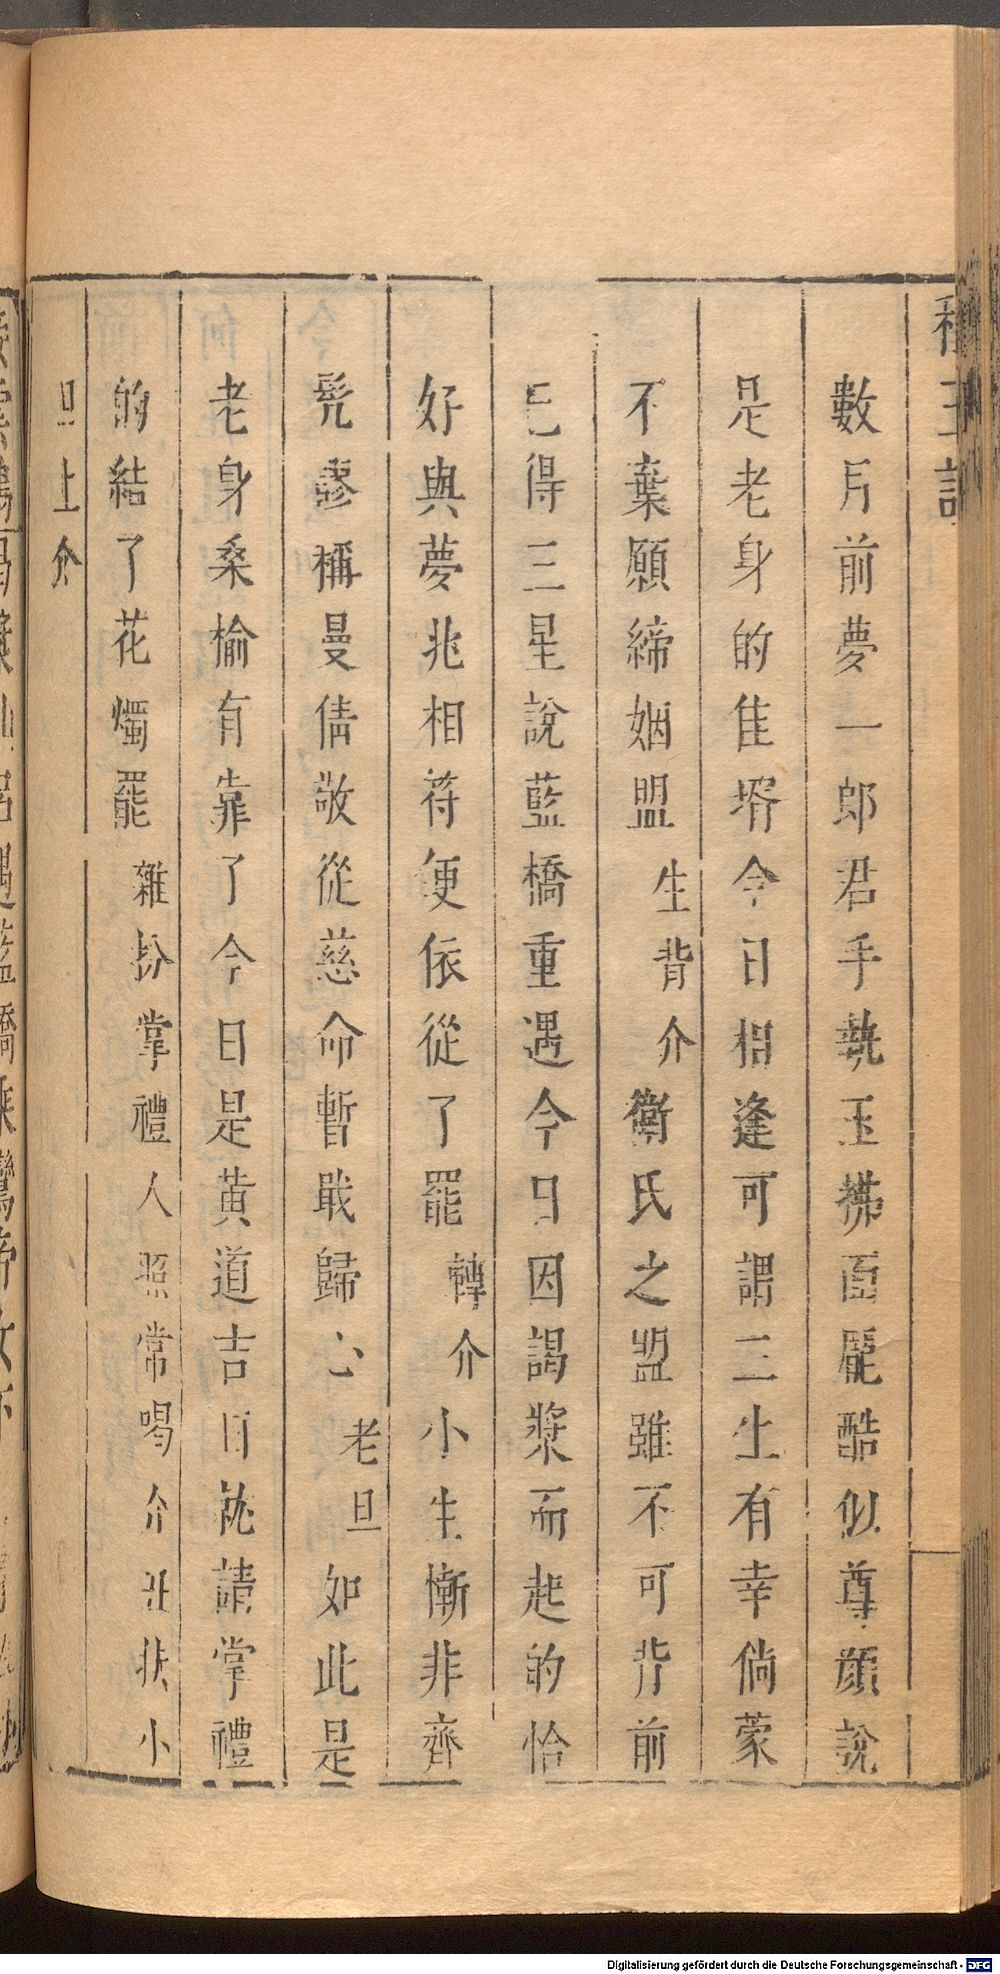 種玉記
數月前夢一郎君手執玉拂面龐酷似尊顔說
是老身的佳壻今日相逢可謂三生有幸倘蒙
不棄願締姻盟生背介衛氏之盟雖不可背前
已得三星說藍橋重遇今日因謁漿而起的恰
好與夢兆相符便依從了罷轉介小生慚非齊
髠謬稱曼倩敬從慈命暫戢歸心老旦如此是
老身桑榆有靠了今日是黄道吉日就請掌禮
的結了花燭罷雜扮掌禮人照常喝介丑扶小
旦上介
Digitalisierung gefördert durch die Deutsche Forschungsgemeinschaft - DFG